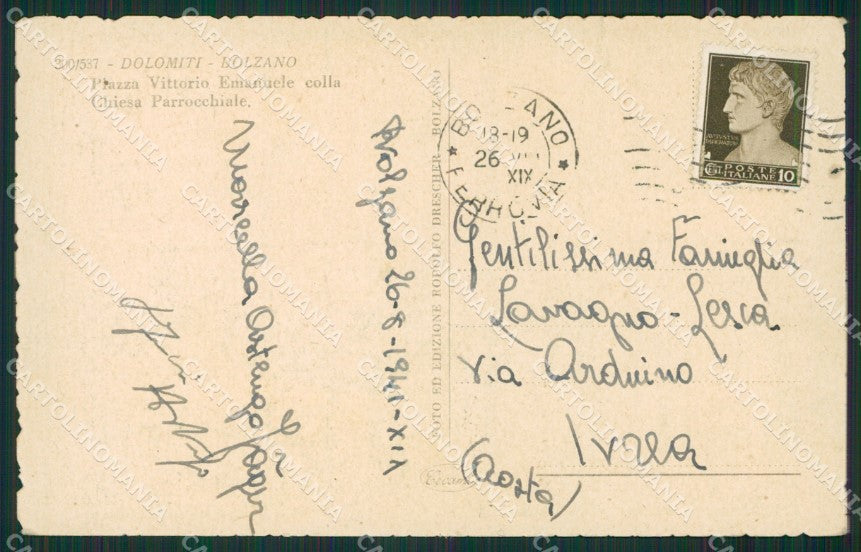 2001587 - DOLOMITI - BOLZANO
Piazza Vittorio Emanuele colla
Chiesa Parrocchiale.
Bolzano 26-8-1941-XIX
Marcella
FOTO ED EDIZIONE RODOLFO DRESCHER - BOLZANO
BOLZANO
18-19
26
XIX
FERROVIA
POSTE
ITALIANE 10
Gentilissima Famiglia
Lavagno-Lesca
Via Arduino
Ivrea
(Aosta)
CARTOLINOMANIA